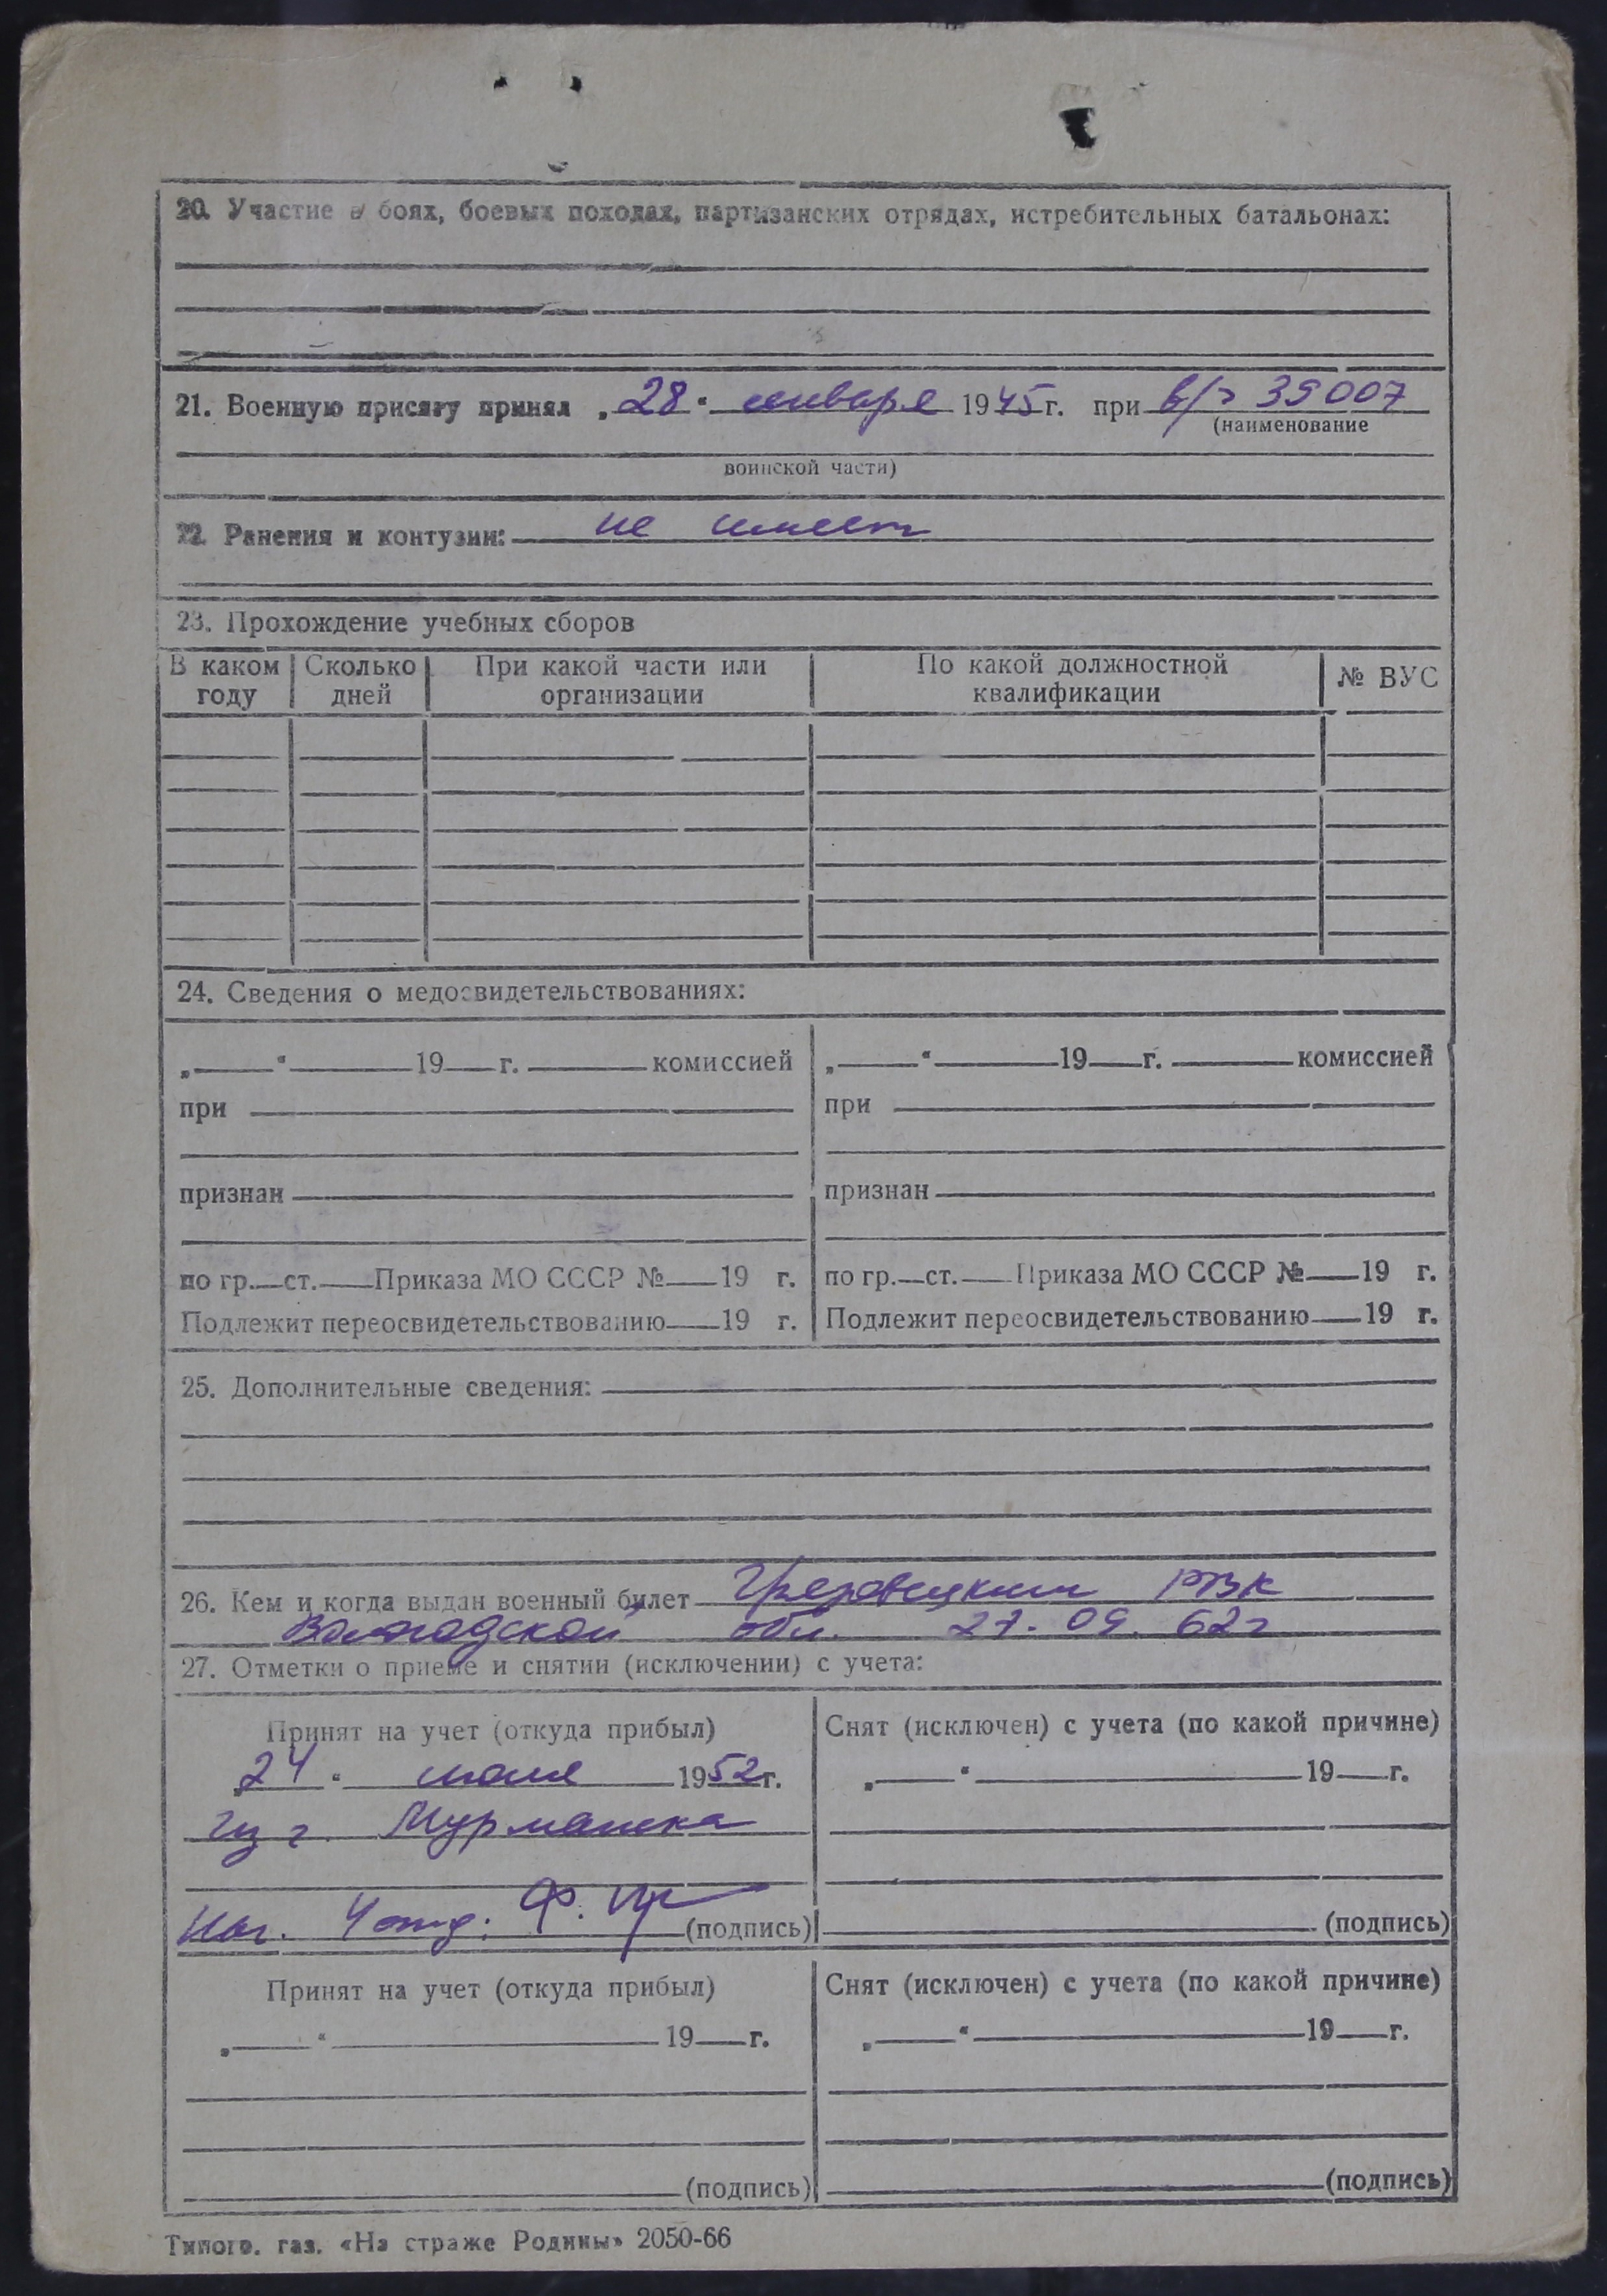 20. Участие в боях, боевых походах, партизанских отрядах, истребительных батальонах:
21. Военную присягу принял „28“ января 1945 г. при в/ч 39007
(наименование
воинской части)
22. Ранения и контузии: не имеет
23. Прохождение учебных сборов
В каком году | Сколько дней | При какой части или организации | По какой должностной квалификации | № ВУС
24. Сведения о медосвидетельствованиях:
„ “ 19 г. комиссией | „ “ 19 г. комиссией
при | при
признан | признан
по гр. ст. Приказа МО СССР № 19 г. | по гр. ст. Приказа МО СССР № 19 г.
Подлежит переосвидетельствованию 19 г. | Подлежит переосвидетельствованию 19 г.
25. Дополнительные сведения:
26. Кем и когда выдан военный билет Грязовецким РВК
Вологодской обл. 27.09.62г
27. Отметки о приеме и снятии (исключении) с учета:
Принят на учет (откуда прибыл) | Снят (исключен) с учета (по какой причине)
„24“ июля 1952 г. | „ “ 19 г.
из г. Мурманска
Нач. 4 отд: (подпись) | (подпись)
Принят на учет (откуда прибыл) | Снят (исключен) с учета (по какой причине)
„ “ 19 г. | „ “ 19 г.
(подпись) | (подпись)
Типогр. газ. «На страже Родины» 2050-66